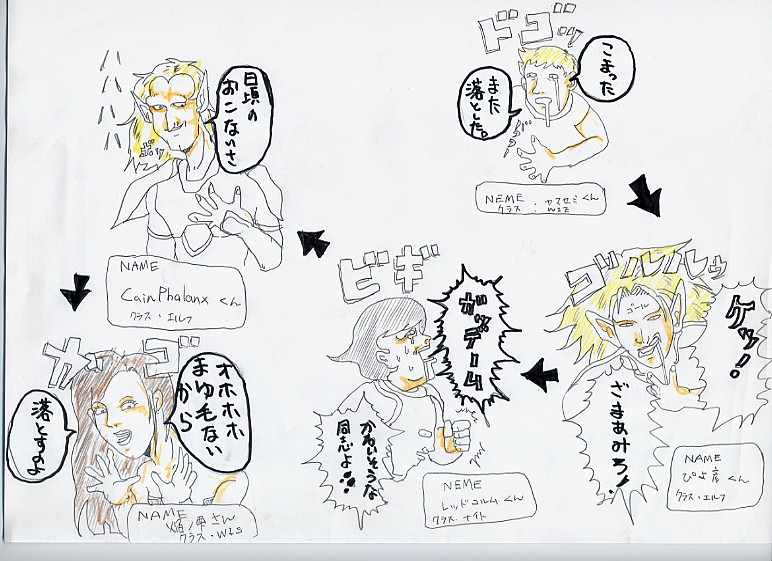 ドゴッ
こまった
また
落とした。
NEME ヤマセミくん
クラス : WIZ
ゴルルルゥ
ケッ!
ゴール
ざまあみろ!
NAME
ぴよ彦くん
クラス・エルフ
ビギ
ガッデーム
かわいそうな
同志よ!!
NEME
レッドコルムくん
クラス・ナイト
ハハハハ
日頃の
おこないさ
NAME
CainPhalanx くん
クラス・エルフ
オホホホ
まゆ毛ない
から
落とすのよ
NAME
クラス・WIS